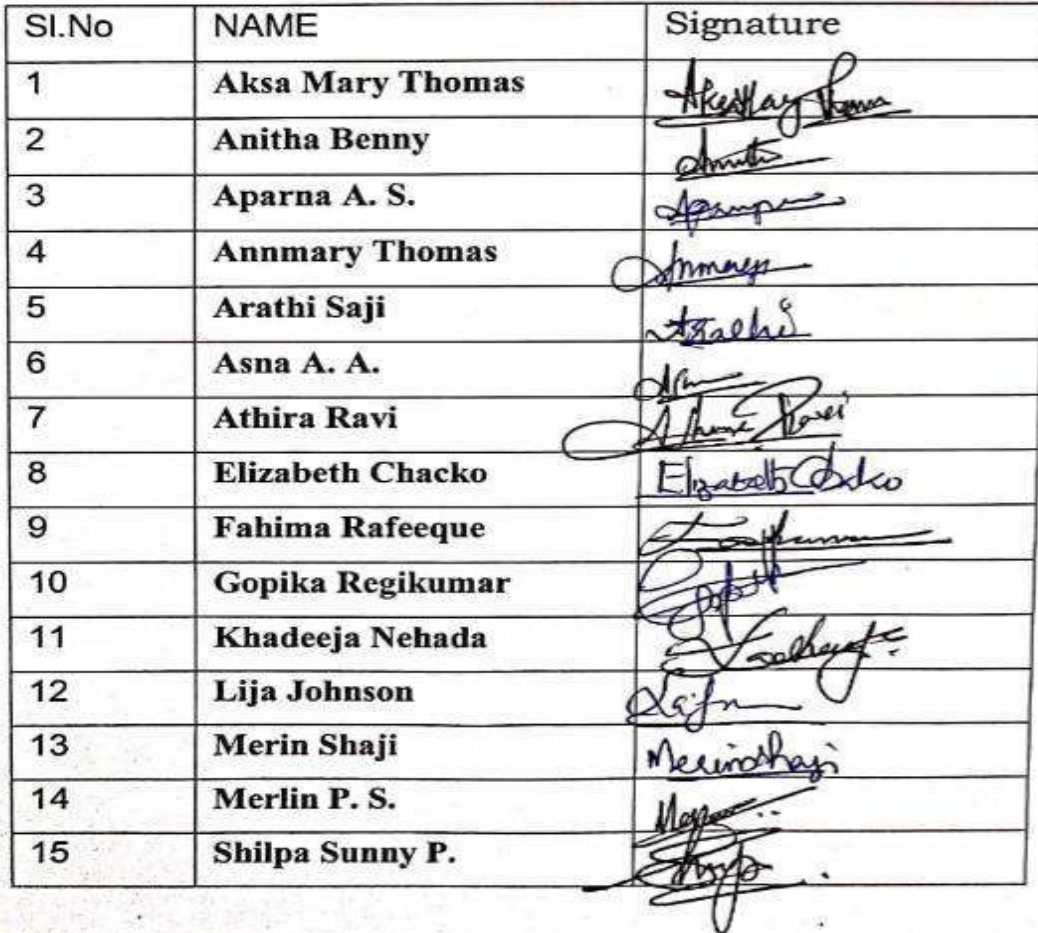 Sl.No NAME Signature
1 Aksa Mary Thomas
2 Anitha Benny
3 Aparna A. S.
4 Annmary Thomas Annmary
5 Arathi Saji Arathi
6 Asna A. A.
7 Athira Ravi Athira Ravi
8 Elizabeth Chacko Elizabeth Chacko
9 Fahima Rafeeque
10 Gopika Regikumar
11 Khadeeja Nehada
12 Lija Johnson
13 Merin Shaji Merin Shaji
14 Merlin P. S.
15 Shilpa Sunny P.